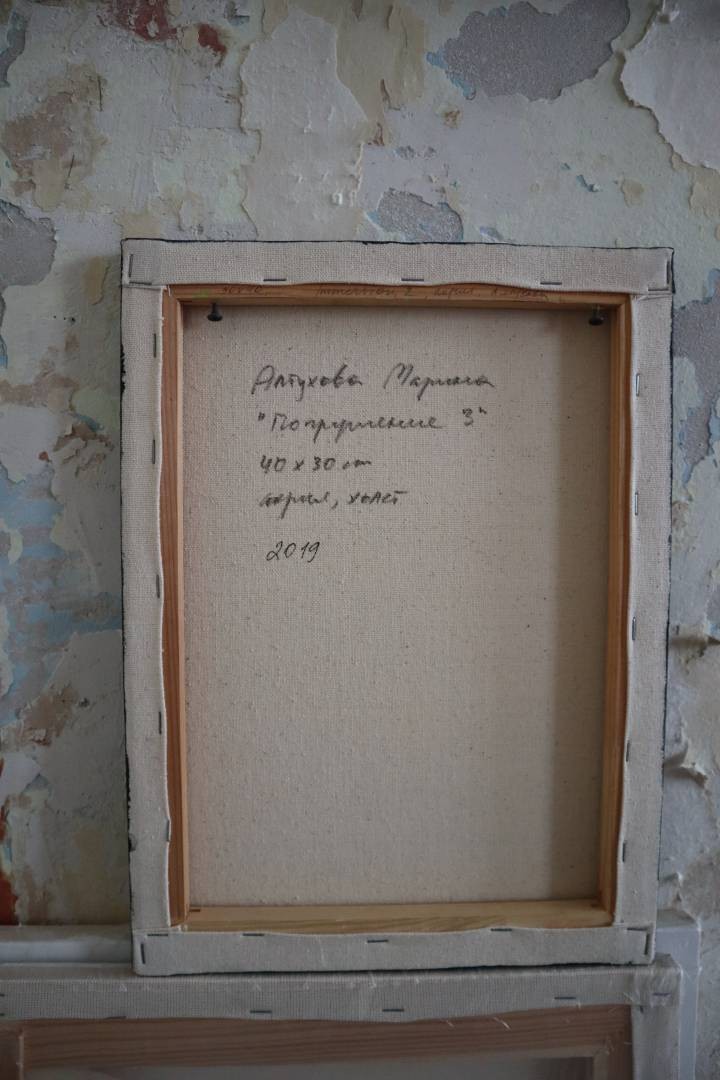 Алтухова Марина
"Погружение 3"
40 x 30 cm
акрил, холст
2019